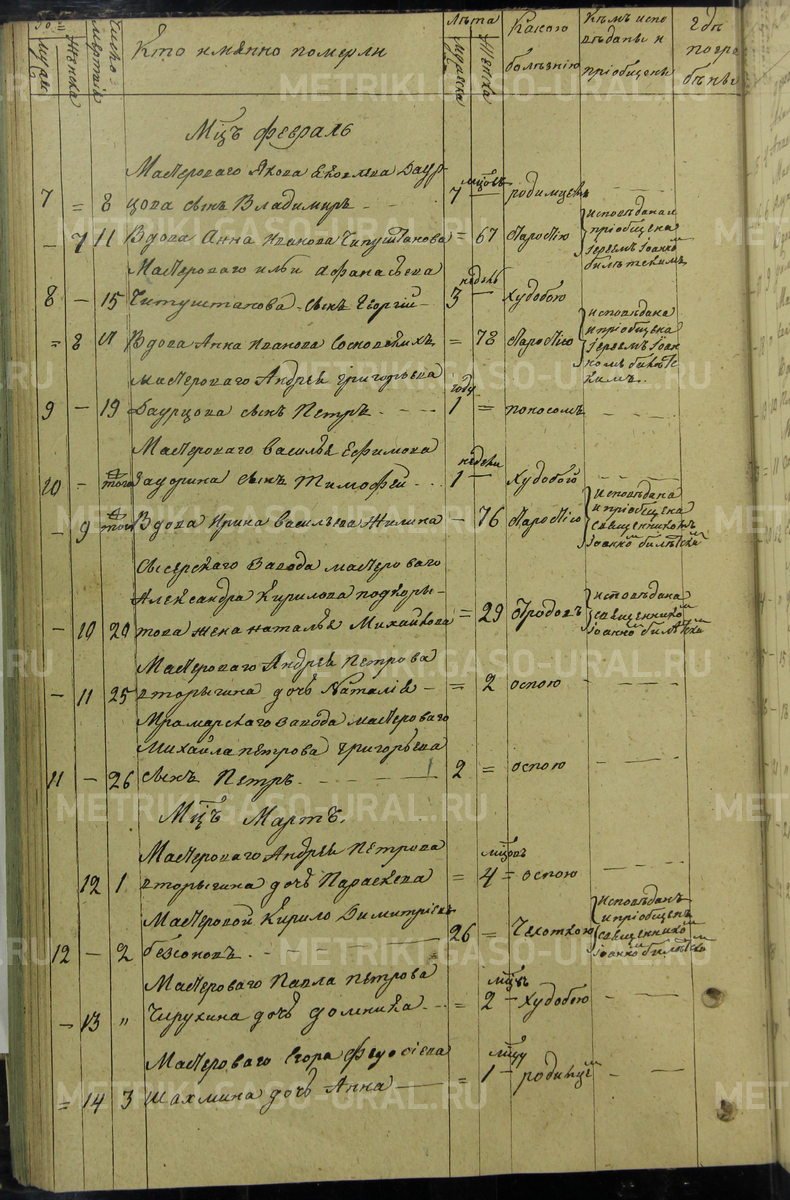 Число смертей
Мужска
Женска
Кто имянно померли
Лѣта
Мужска
Женска
Какою болѣзнію
Кѣмъ исповѣданы и пріобщены
Гдѣ погребены
Мцъ февраль
Мастероваго Якова Яковлева Даур-
7 = 8 цова сынъ Владимиръ 7 мцовъ родимцемъ
- 7 11 Вдова Анна Иванова = 67 старостію исповѣдана и пріобщена іереемъ Іоанномъ
Мастероваго Ильи Афанасьева
8 - 15 сынъ Георгій 3 недель худобою
= 8 17 Вдова Анна Иванова = 78 старостію исповѣдана и пріобщена іереемъ Іоанномъ
Мастероваго Андрея Григорьева
9 - 19 Даурцова сынъ Петръ 1 году = поносомъ
Мастероваго Василья Ефимова
10 - того сынъ Тимофей 1 недели худобою
- 9 того Вдова Ирина Васильева Жилина - 76 старостію исповѣдана и пріобщена священникомъ Іоанномъ
Сысерскаго Завода мастероваго
Александра Кирилова Подкоры-
- 10 20 това жена Наталья Михайлова = 29 исповѣдана священникомъ Іоанномъ
Мастероваго Андрея Петрова
- 11 25 Вторыгина дочь Наталія = 2 оспою
Мрамарскаго Завода мастероваго
Михайла Петрова Григорьева
11 - 26 сынъ Петръ 2 = оспою
Мцъ Мартъ.
Мастероваго Андрея Петрова
12 1 Вторыгина дочь Параскева = 4 мцовъ = оспою
Мастеровой Кирило Димитріевъ
12 - 2 Безсоновъ 26 - чахоткою исповѣданъ и пріобщенъ священникомъ Іоанномъ
Мастероваго Павла Петрова
- 13 " Чирухина дочь Домника = 2 мцъ - худобою
Мастероваго Егора Федосіева
= 14 3 Шахмина дочь Анна = 1 мцу - родимцемъ
METRIKI.GASO-URAL.RU